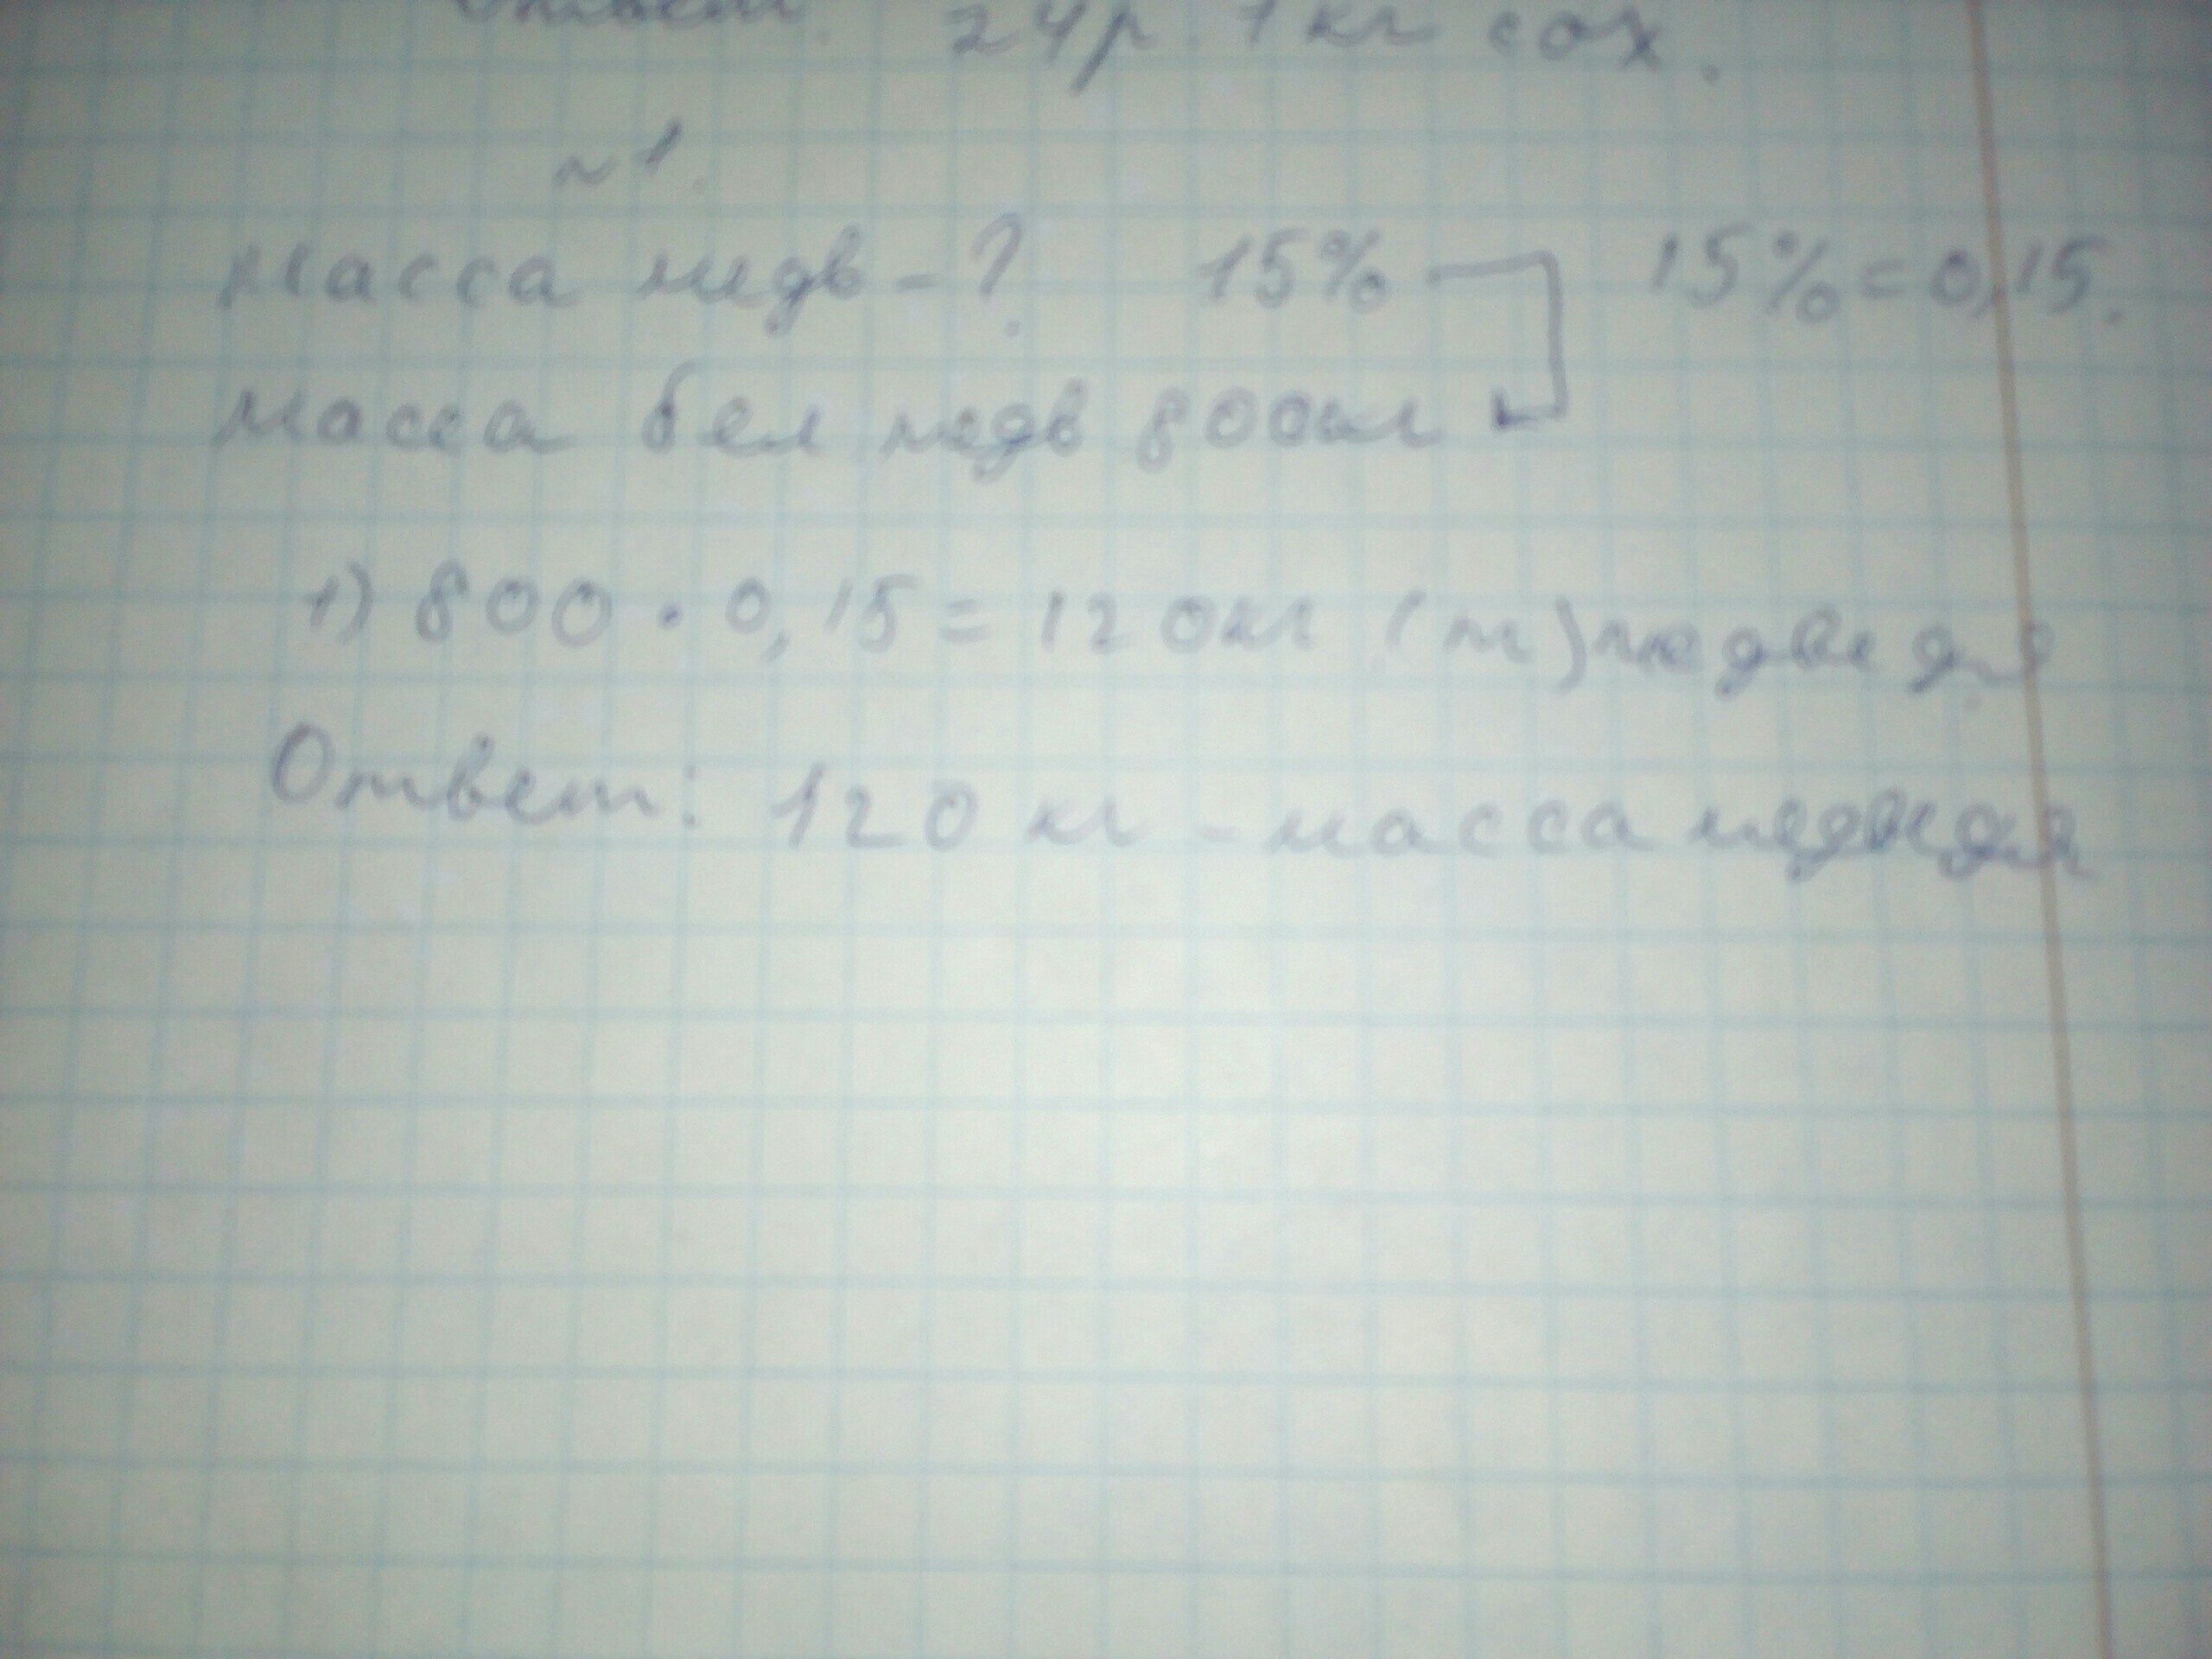 Ответ. 24р. 1 кг сах.
№1.
Масса медв - ? 15% 15% = 0,15.
Масса бел медв 800кг
1) 800 · 0,15 = 120кг (m) медведя
Ответ: 120 кг - масса медведя